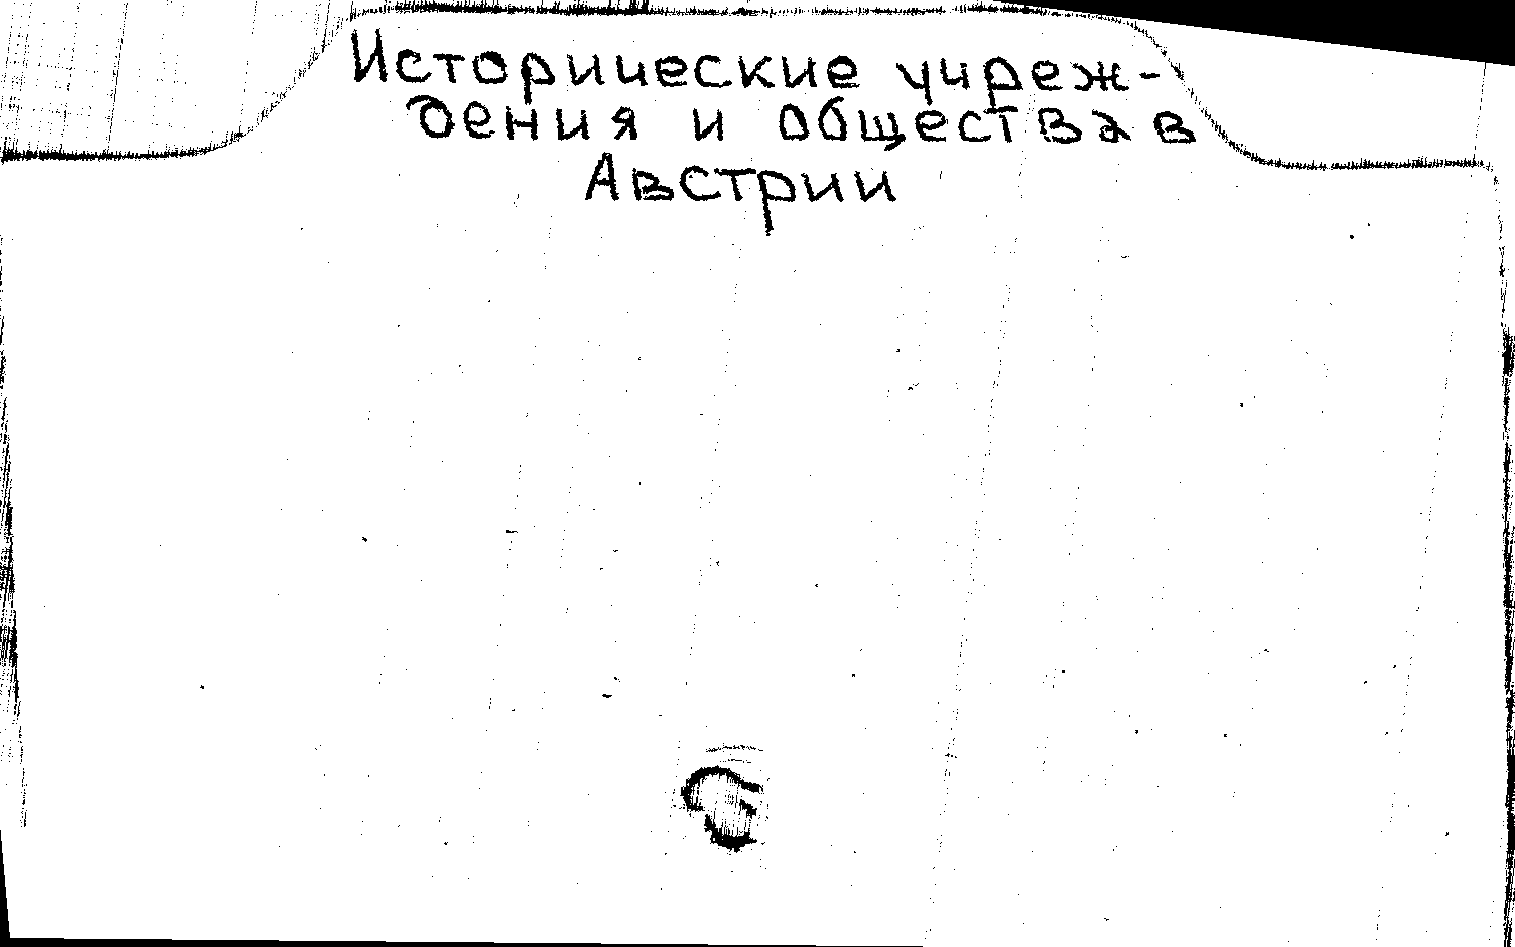 Исторические учреж-
дения и общества в
Австрии